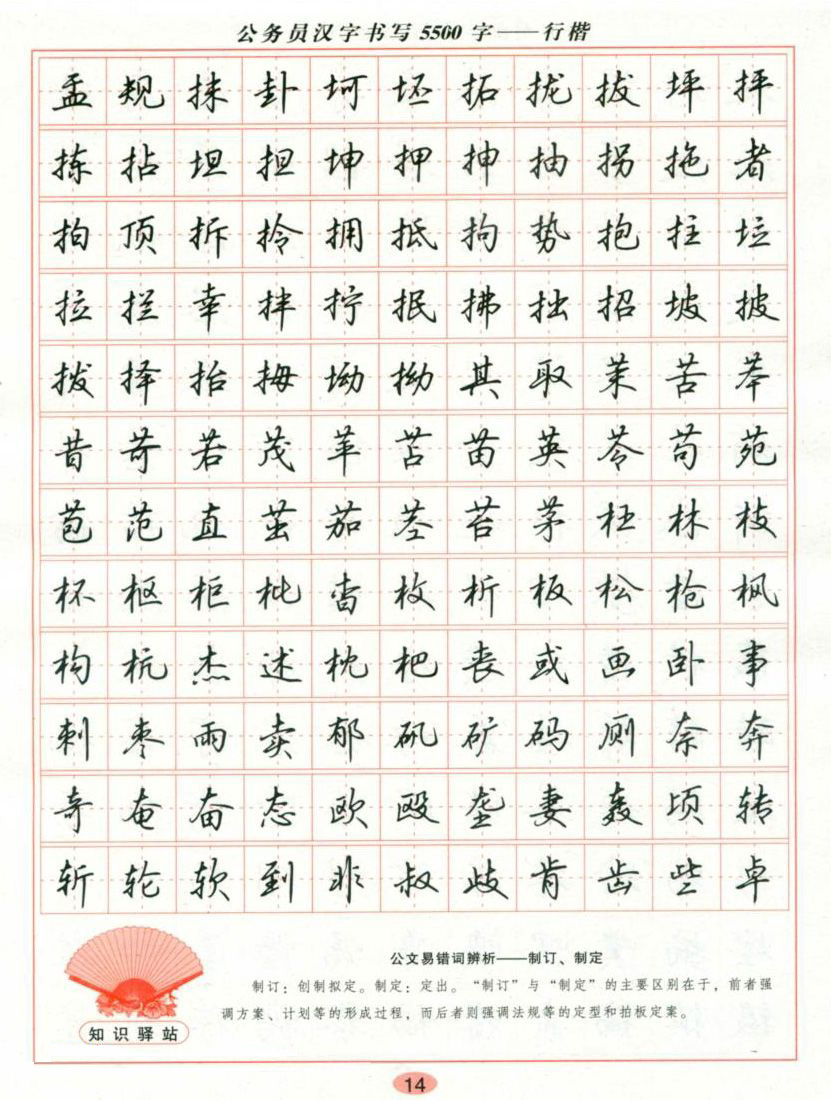 公务员汉字书写 5500 字——行楷
孟 规 抹 卦 坷 坯 拓 拢 拔 坪 抨
拣 拈 坦 担 坤 押 抻 抽 拐 拖 者
拍 顶 拆 拎 拥 抵 拘 势 抱 拄 垃
拉 拦 幸 拌 拧 抿 拂 拙 招 坡 披
拨 择 抬 拇 坳 拗 其 取 茉 苦 苯
昔 苛 若 茂 苹 苫 苗 英 苓 苟 苑
苞 范 直 茁 茄 茎 苔 茅 枉 林 枝
杯 枢 柜 枇 杳 枚 析 板 松 枪 枫
构 杭 杰 述 枕 杷 丧 或 画 卧 事
刺 枣 雨 卖 郁 矾 矿 码 厕 奈 奔
奇 奄 奋 态 欧 殴 垄 妻 轰 顷 转
斩 轮 软 到 非 叔 歧 肯 齿 些 卓
公文易错词辨析——制订、制定
制订：创制拟定。制定：定出。“制订”与“制定”的主要区别在于，前者强
调方案、计划等的形成过程，而后者则强调法规等的定型和拍板定案。
知识驿站
14